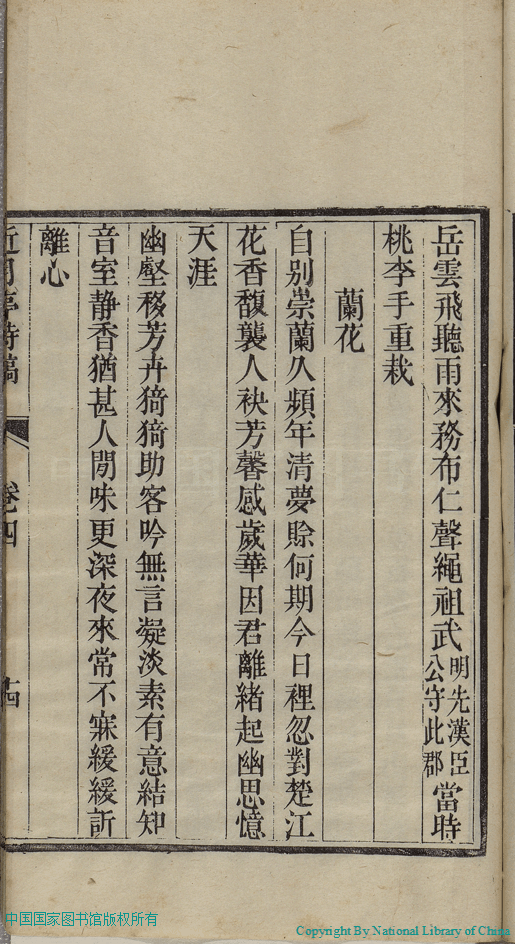 岳雲飛聽雨來務布仁聲繩祖武明先漢臣公守此郡當時
桃李手重栽
蘭花
自別崇蘭久頻年清夢賒何期今日裡忽對楚江
花香馥襲人袂芳馨感歲華因君離緒起幽思憶
天涯
幽壑移芳卉猗猗助客吟無言凝淡素有意結知
音室静香猶甚人閒味更深夜來常不寐緩緩訴
離心
近月亭詩稿 卷四 十四
中国国家图书馆版权所有
Copyright By National Library of China